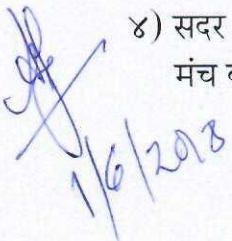 ४) सदर
मंच
1/6/2018